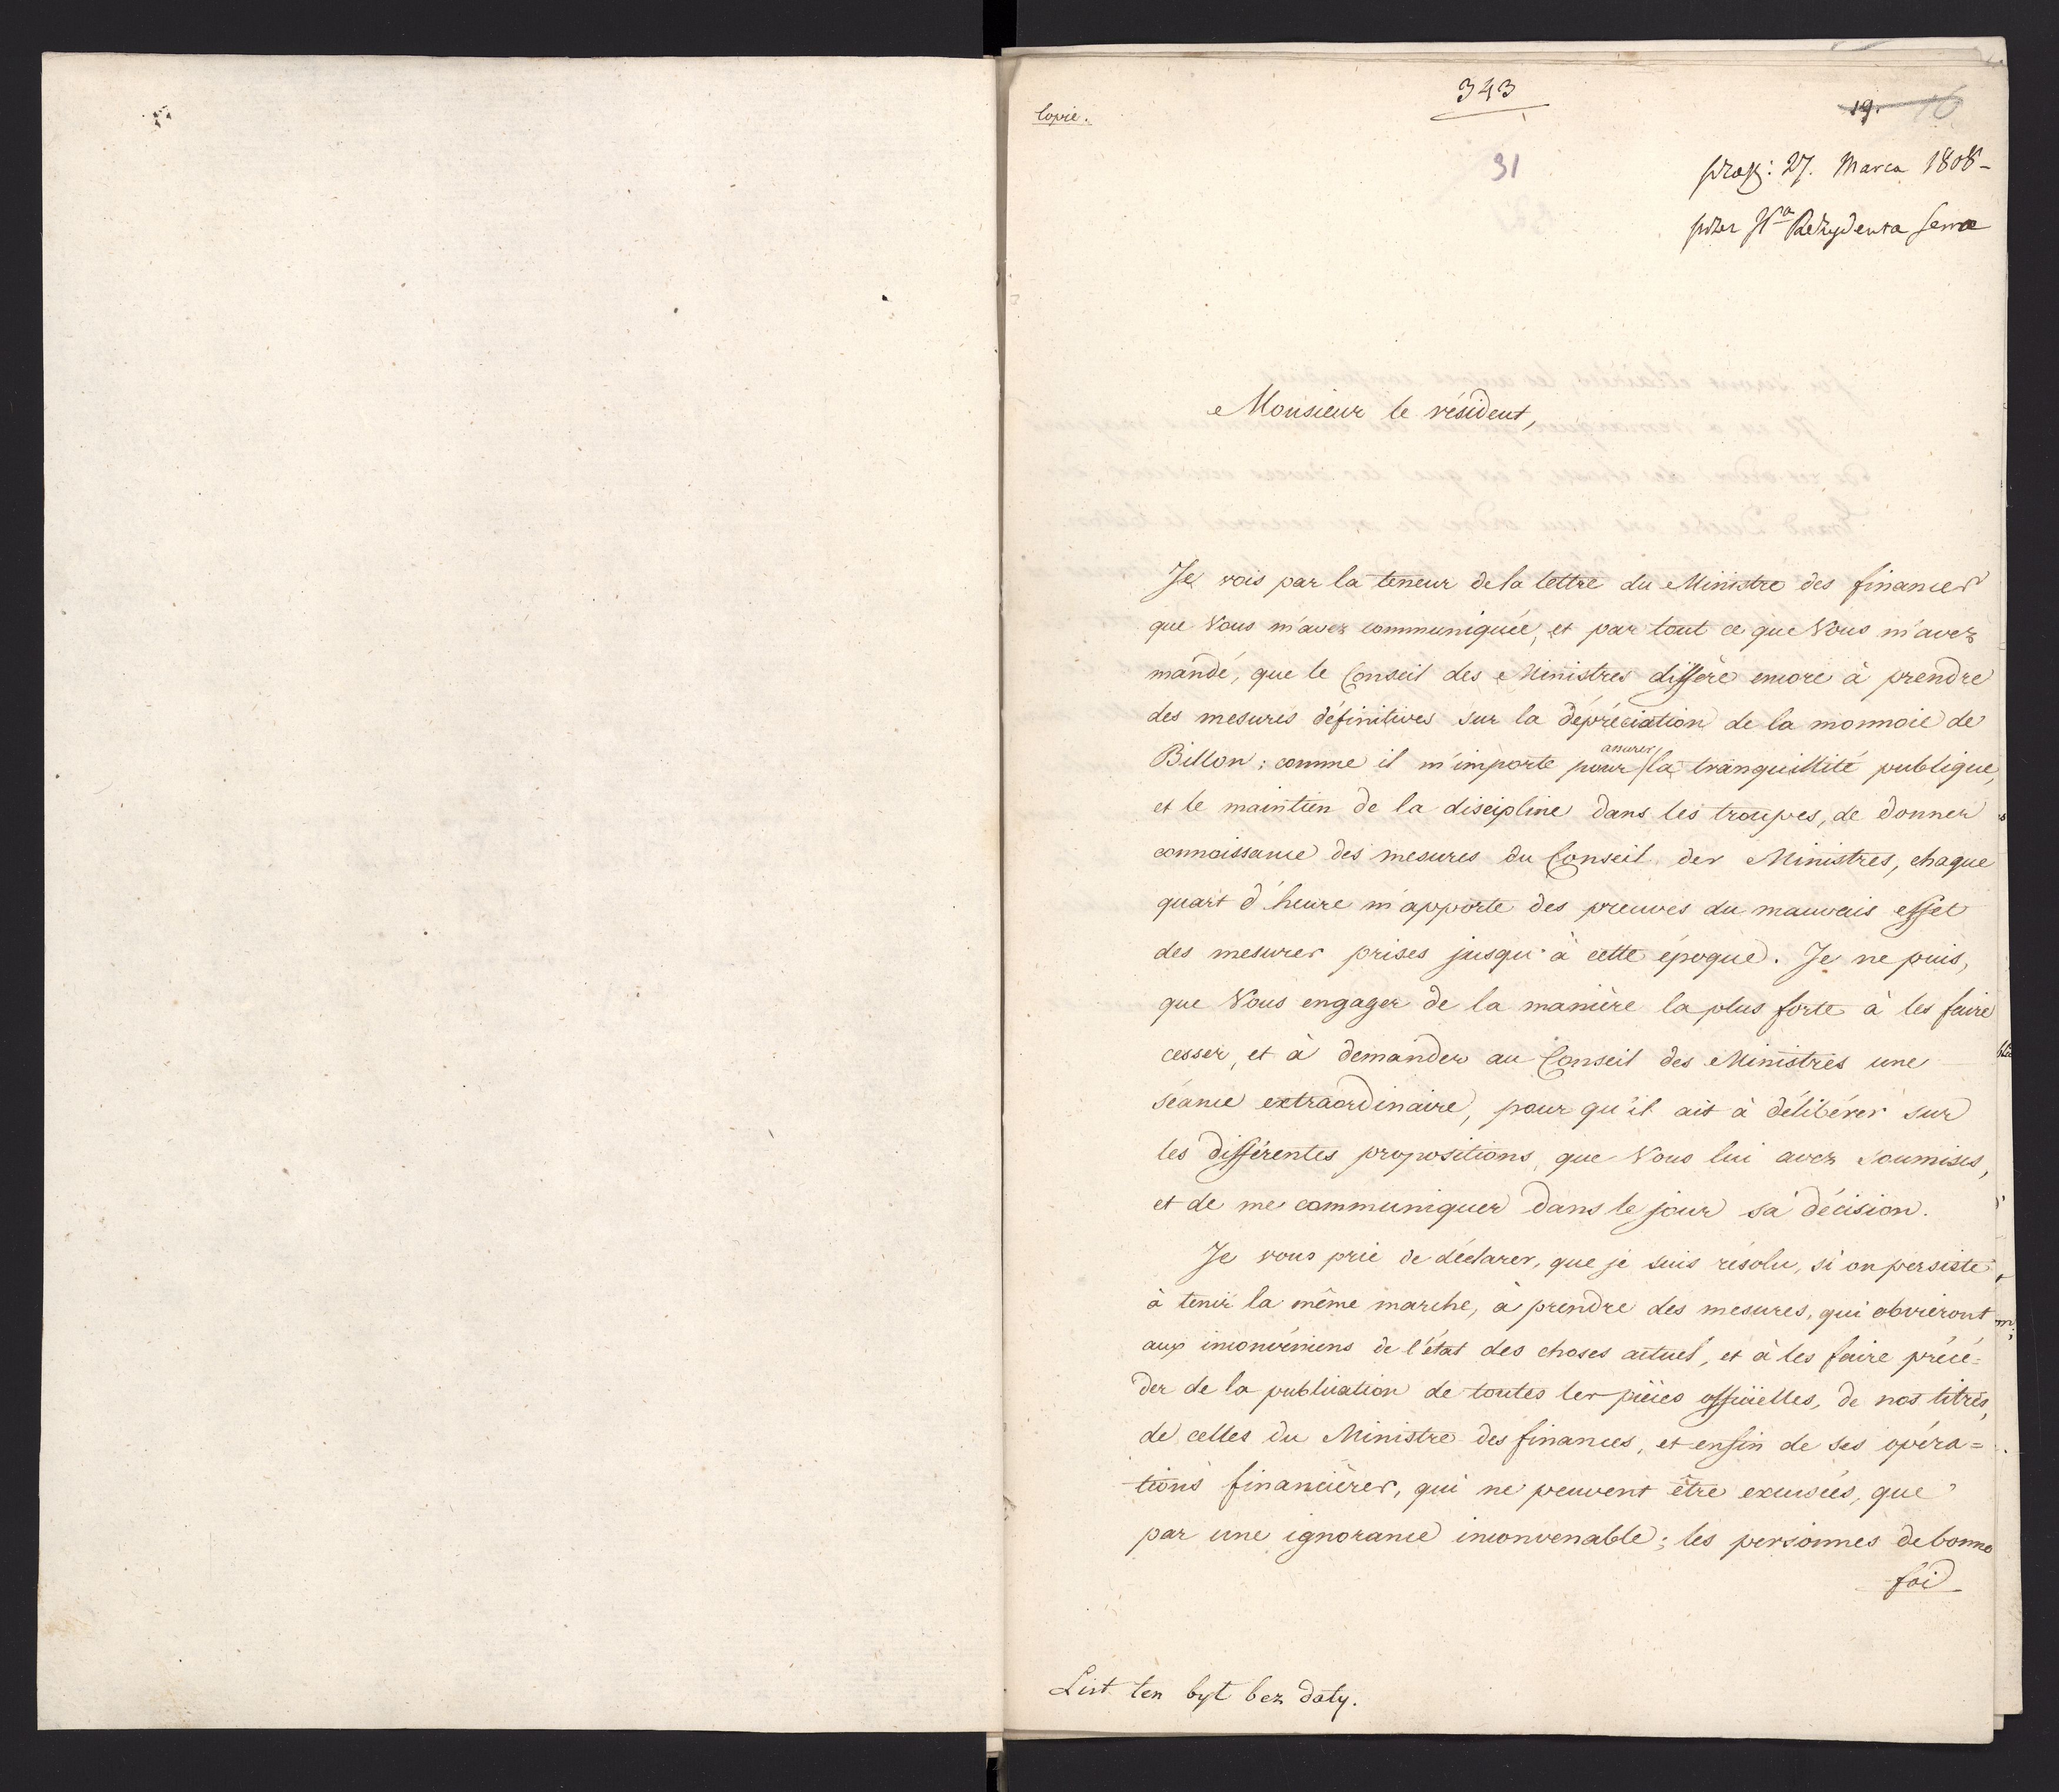 Copie.
343
19. 16
31
prez: 27. Marca 1808 -
przez Jᵖᵃ Rezydenta Serra
Monsieur le résident,
Je vois par la teneur de la lettre du Ministre des finances
que Vous m'avez communiquée, et par tout ce que Vous m'avez
mandé, que le Conseil des Ministres diffère encore à prendre
des mesures définitives sur la dépréciation de la monnoie de
Billon; comme il m'importe pour assurer la tranquillité publique,
et le maintien de la discipline dans les troupes, de donner
connoissance des mesures du Conseil des Ministres, chaque
quart d'heure m'apporte des preuves du mauvais effet
des mesures prises jusqu'à cette époque. Je ne puis,
que Vous engager de la manière la plus forte à les faire
cesser, et à demander au Conseil des Ministres une
séance extraordinaire, pour qu'il ait à délibérer sur
les différentes propositions, que Vous lui avez soumises,
et de me communiquer dans le jour sa décision.
Je vous prie de déclarer, que je suis résolu, si on persiste
à tenir la même marche, à prendre des mesures, qui obvieront
aux inconvéniens de l'état des choses actuel, et à les faire précé=
der de la publication de toutes les pièces officielles, de nos titres,
de celles du Ministre des finances, et enfin de ses opéra=
tions financières, qui ne peuvent être excusées, que
par une ignorance inconvenable; les personnes de bonne
foi
List ten był bez daty.